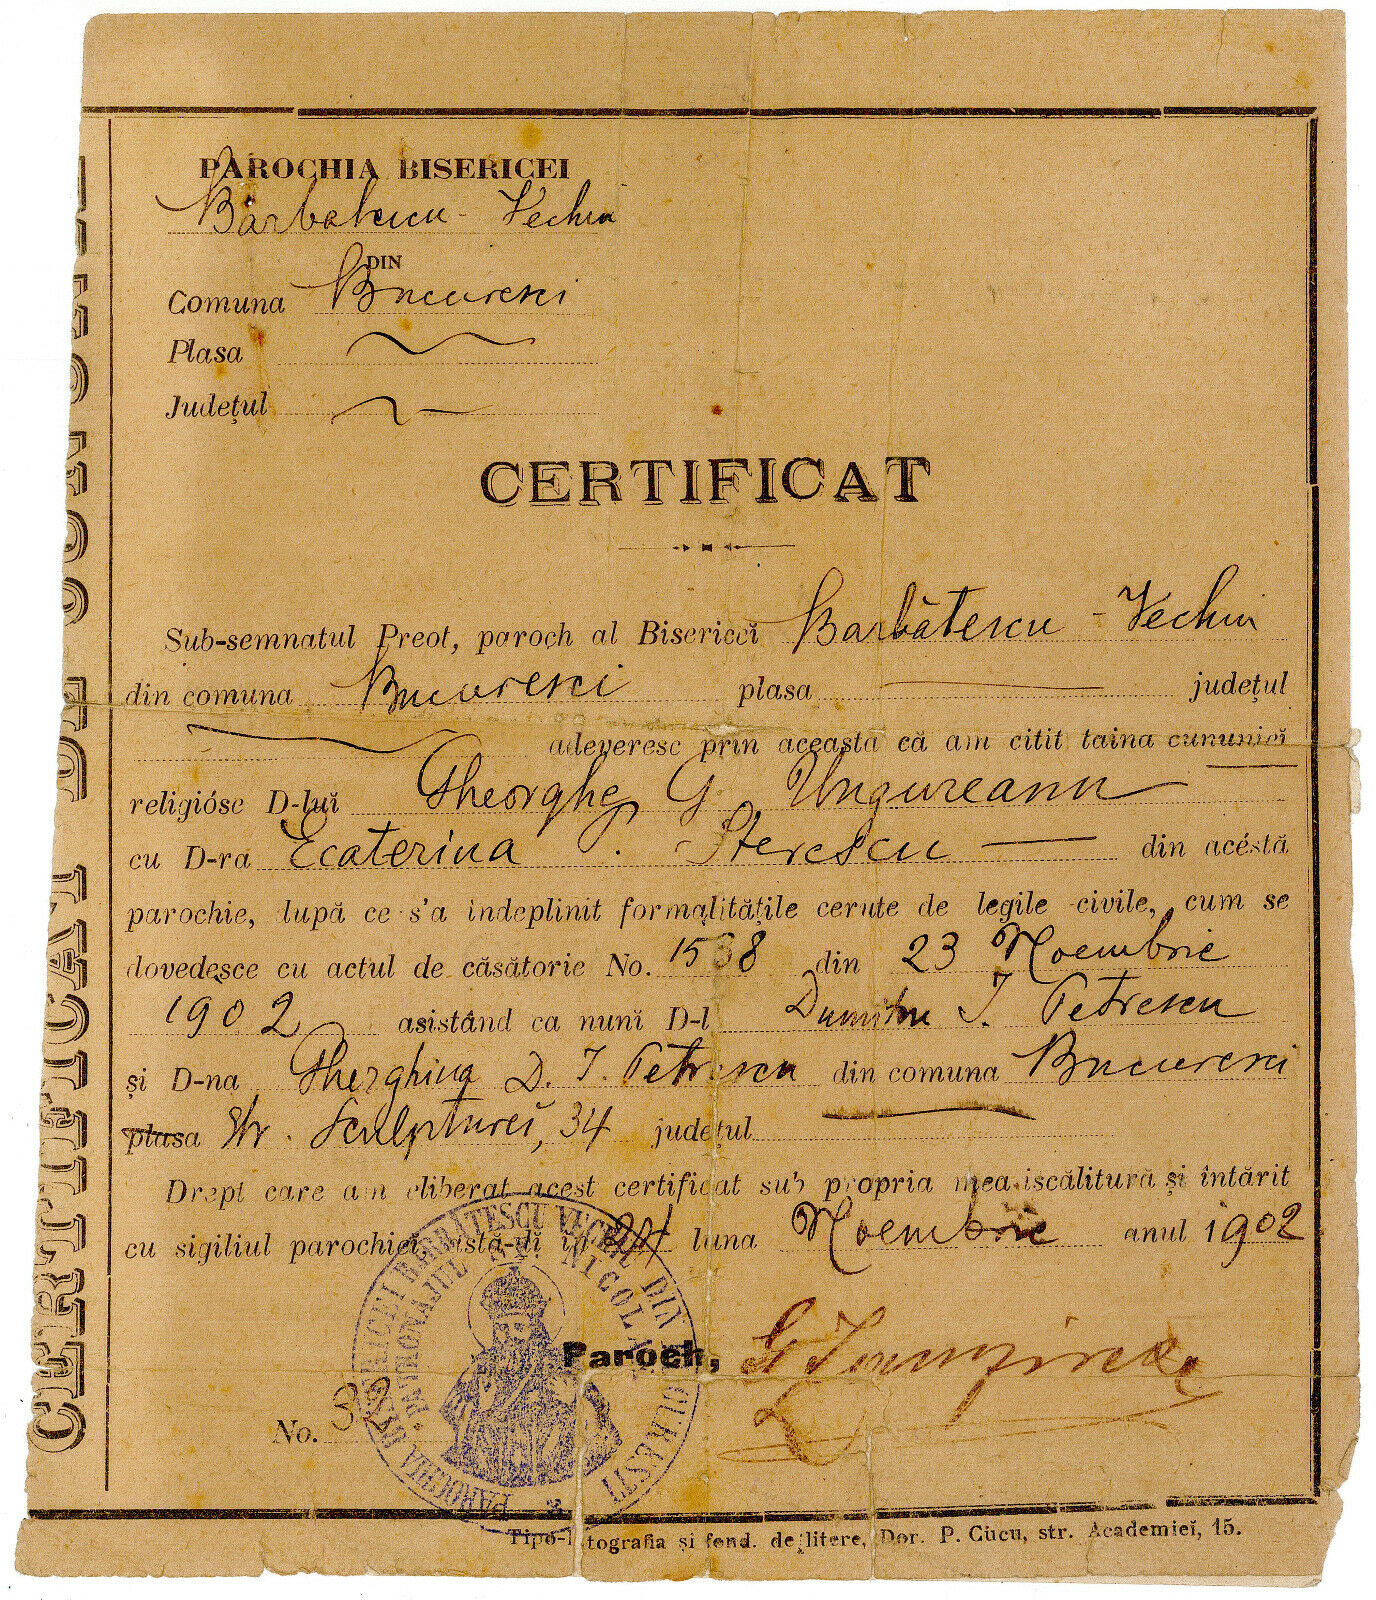 PAROCHIA BISERICEI
Bărbatescu - Vechiu
DIN
Comuna Bucuresci
Plasa
Județul
CERTIFICAT
Sub-semnatul Preot, paroch al Bisericeĭ Barbătescu - Vechiu
din comuna Bucuresci plasa județul
adeveresc prin aceasta că am citit taina cununieĭ
religióse D-luĭ Gheorghe G. Ungureanu
cu D-ra Ecaterina Sterescu din acéstă
parochie, după ce s'a îndeplinit formalitățile cerute de legile civile, cum se
dovedesce cu actul de căsătorie No. 1538 din 23 Noembrie
1902 asistând ca nunĭ D-l Dumitru I. Petrescu
și D-na Gherghina D. I. Petrescu din comuna Bucuresci
plasa Str. Sculptureĭ, 34 județul
Drept care am eliberat acest certificat sub propria mea iscălitură și întărit
cu sigiliul parochiei astă-ḑi în 24 luna Noembrie anul 1902
PAROCHIA BISERICEI BĂRBĂTESCU VECHIŬ DIN BUCUREȘTI
PATRONAJUL SF. NICOLAE
Paroch,
No. 32
Tipo-litografia și fond. de litere, Dor. P. Cucu, str. Academieĭ, 15.
CERTIFICAT DE